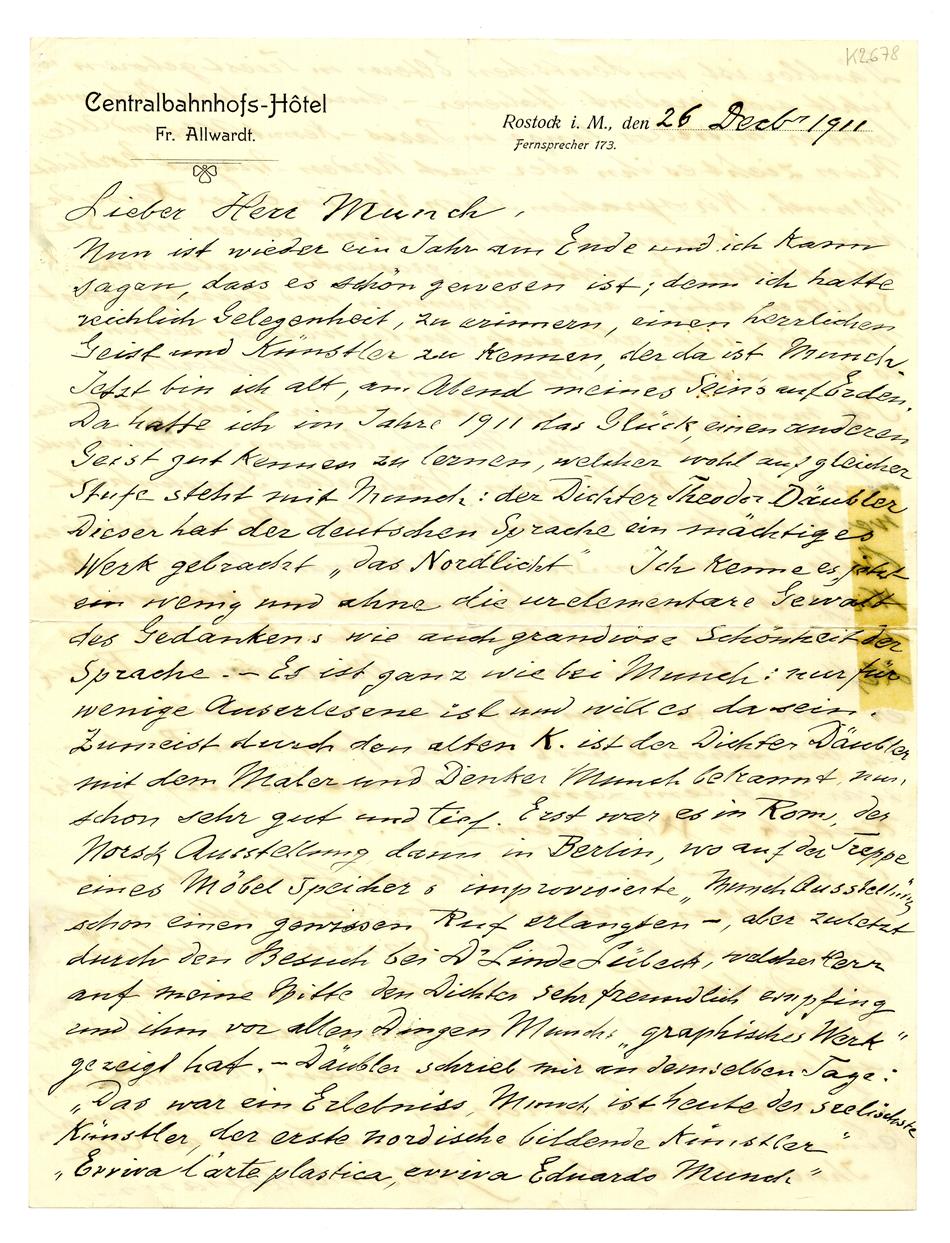 K2678
Centralbahnhofs-Hôtel
Fr. Allwardt.
Rostock i. M., den 26 Decbr 1911
Fernsprecher 173.
Lieber Herr Munch,
Nun ist wieder ein Jahr am Ende und ich kann
sagen, dass es schön gewesen ist; denn ich hatte
reichlich Gelegenheit, zu erinnern, einen herrlichen
Geist und Künstler zu kennen, der da ist Munch.
Jetzt bin ich alt, am Abend meines Sein's auf Erden.
Da hatte ich im Jahre 1911 das Glück, einen anderen
Geist gut kennen zu lernen, welcher wohl auf gleicher
Stufe steht mit Munch: der Dichter Theodor Däubler
Dieser hat der deutschen Sprache ein mächtiges
Werk gebracht „das Nordlicht" Ich kenne es jetzt
ein wenig und ahne die urelementare Gewalt
des Gedankens wie auch grandiose Schönheit der
Sprache. – Es ist ganz wie bei Munch: nur für
wenige Auserlesene ist und will es da sein.
Zumeist durch den alten K. ist der Dichter Däubler
mit dem Maler und Denker Munch bekannt, nun,
schon sehr gut und tief. Erst war es in Rom, der
Norsk Ausstellung, dann in Berlin, wo auf der Treppe
eines Möbel Speichers improvisierte „Munch Ausstellung
schon einen gewissen Ruf erlangten –, aber zuletzt
durch den Besuch bei Dr Linde Lübeck, welcher Herr
auf meine Bitte den Dichter sehr freundlich empfing
und ihm vor allen Dingen Munchs „graphisches Werk"
gezeigt hat. – Däubler schrieb mir an demselben Tage:
„Das war ein Erlebniss, Munch, ist heute der seelischste
Künstler, der erste nordische bildende Künstler"
„Evviva l'arte plastica, evviva Eduardo Munch"